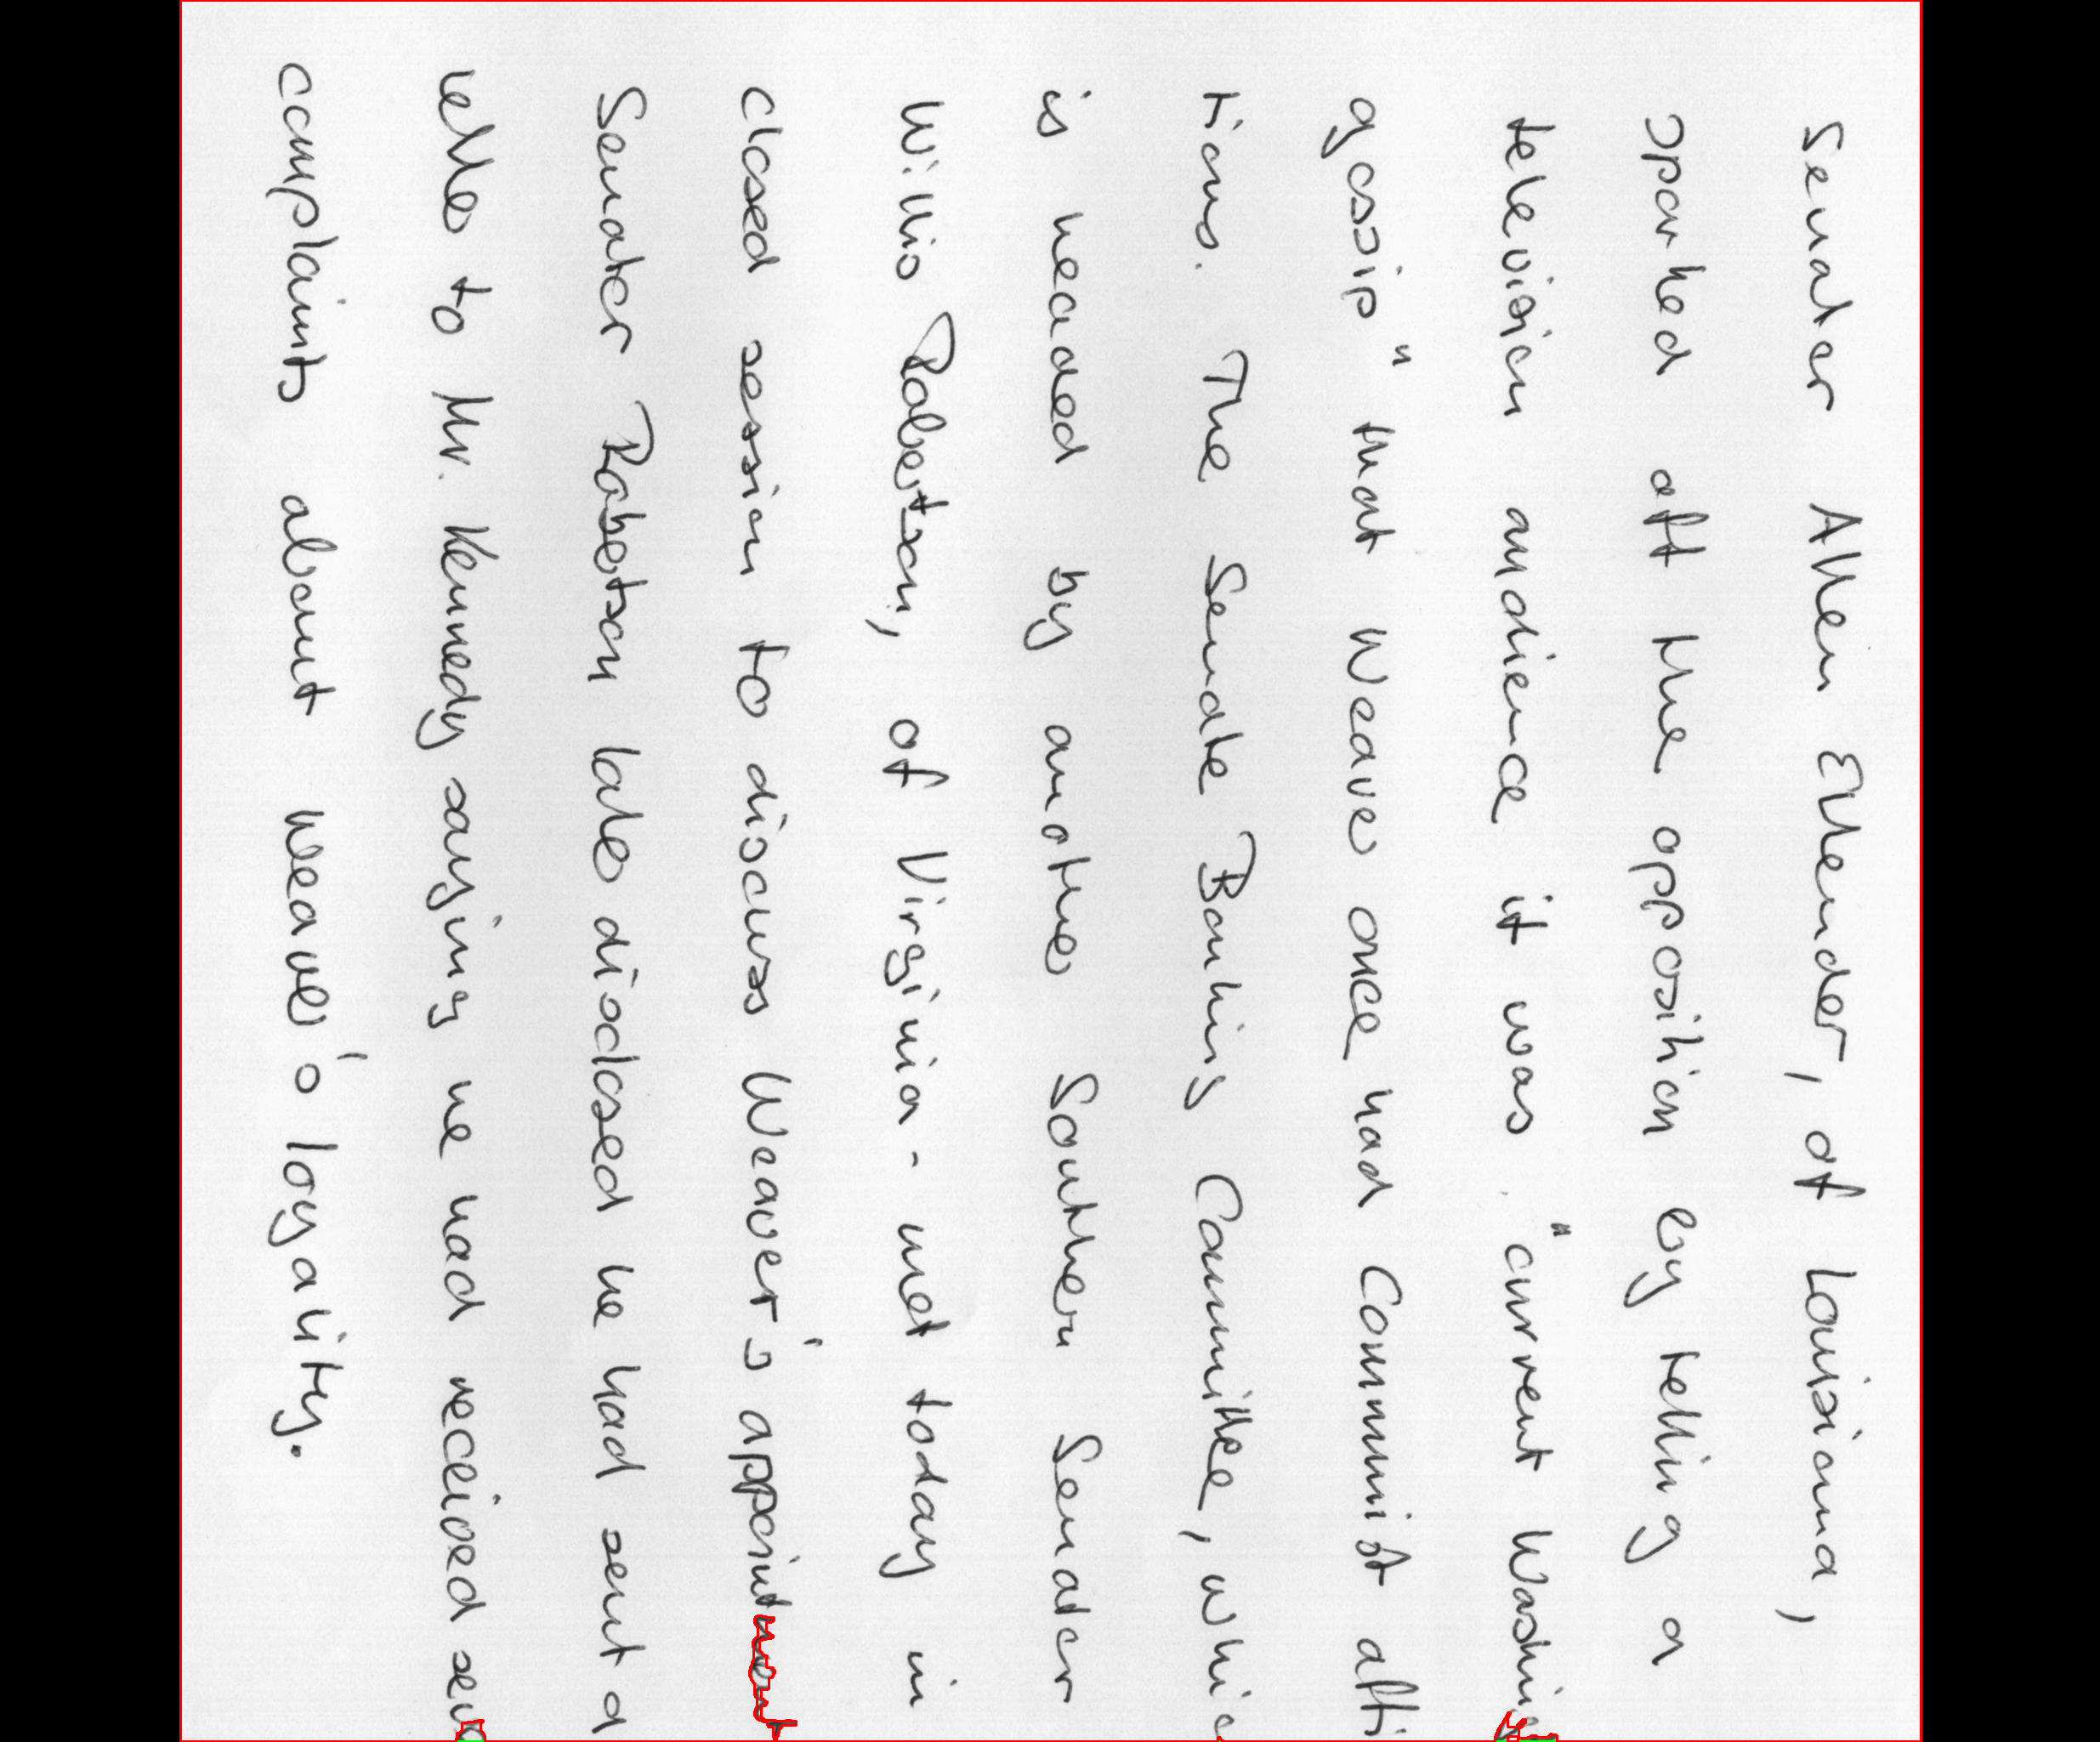 Senator Allen Ellender, of Louisiana,
sparked off the opposition by telling a
television audience it was "current Washing
gossip" that Weaver once had Communist affi
tions. The Senate Banking Committee, whic
is headed by another Southern Senator
Willis Robertson, of Virginia - met today in
closed session to discuss Weaver's appointment
Senator Robertson later disclosed he had sent a
letter to Mr. Kennedy saying he had received sev
complaints about Weaver's loyality.